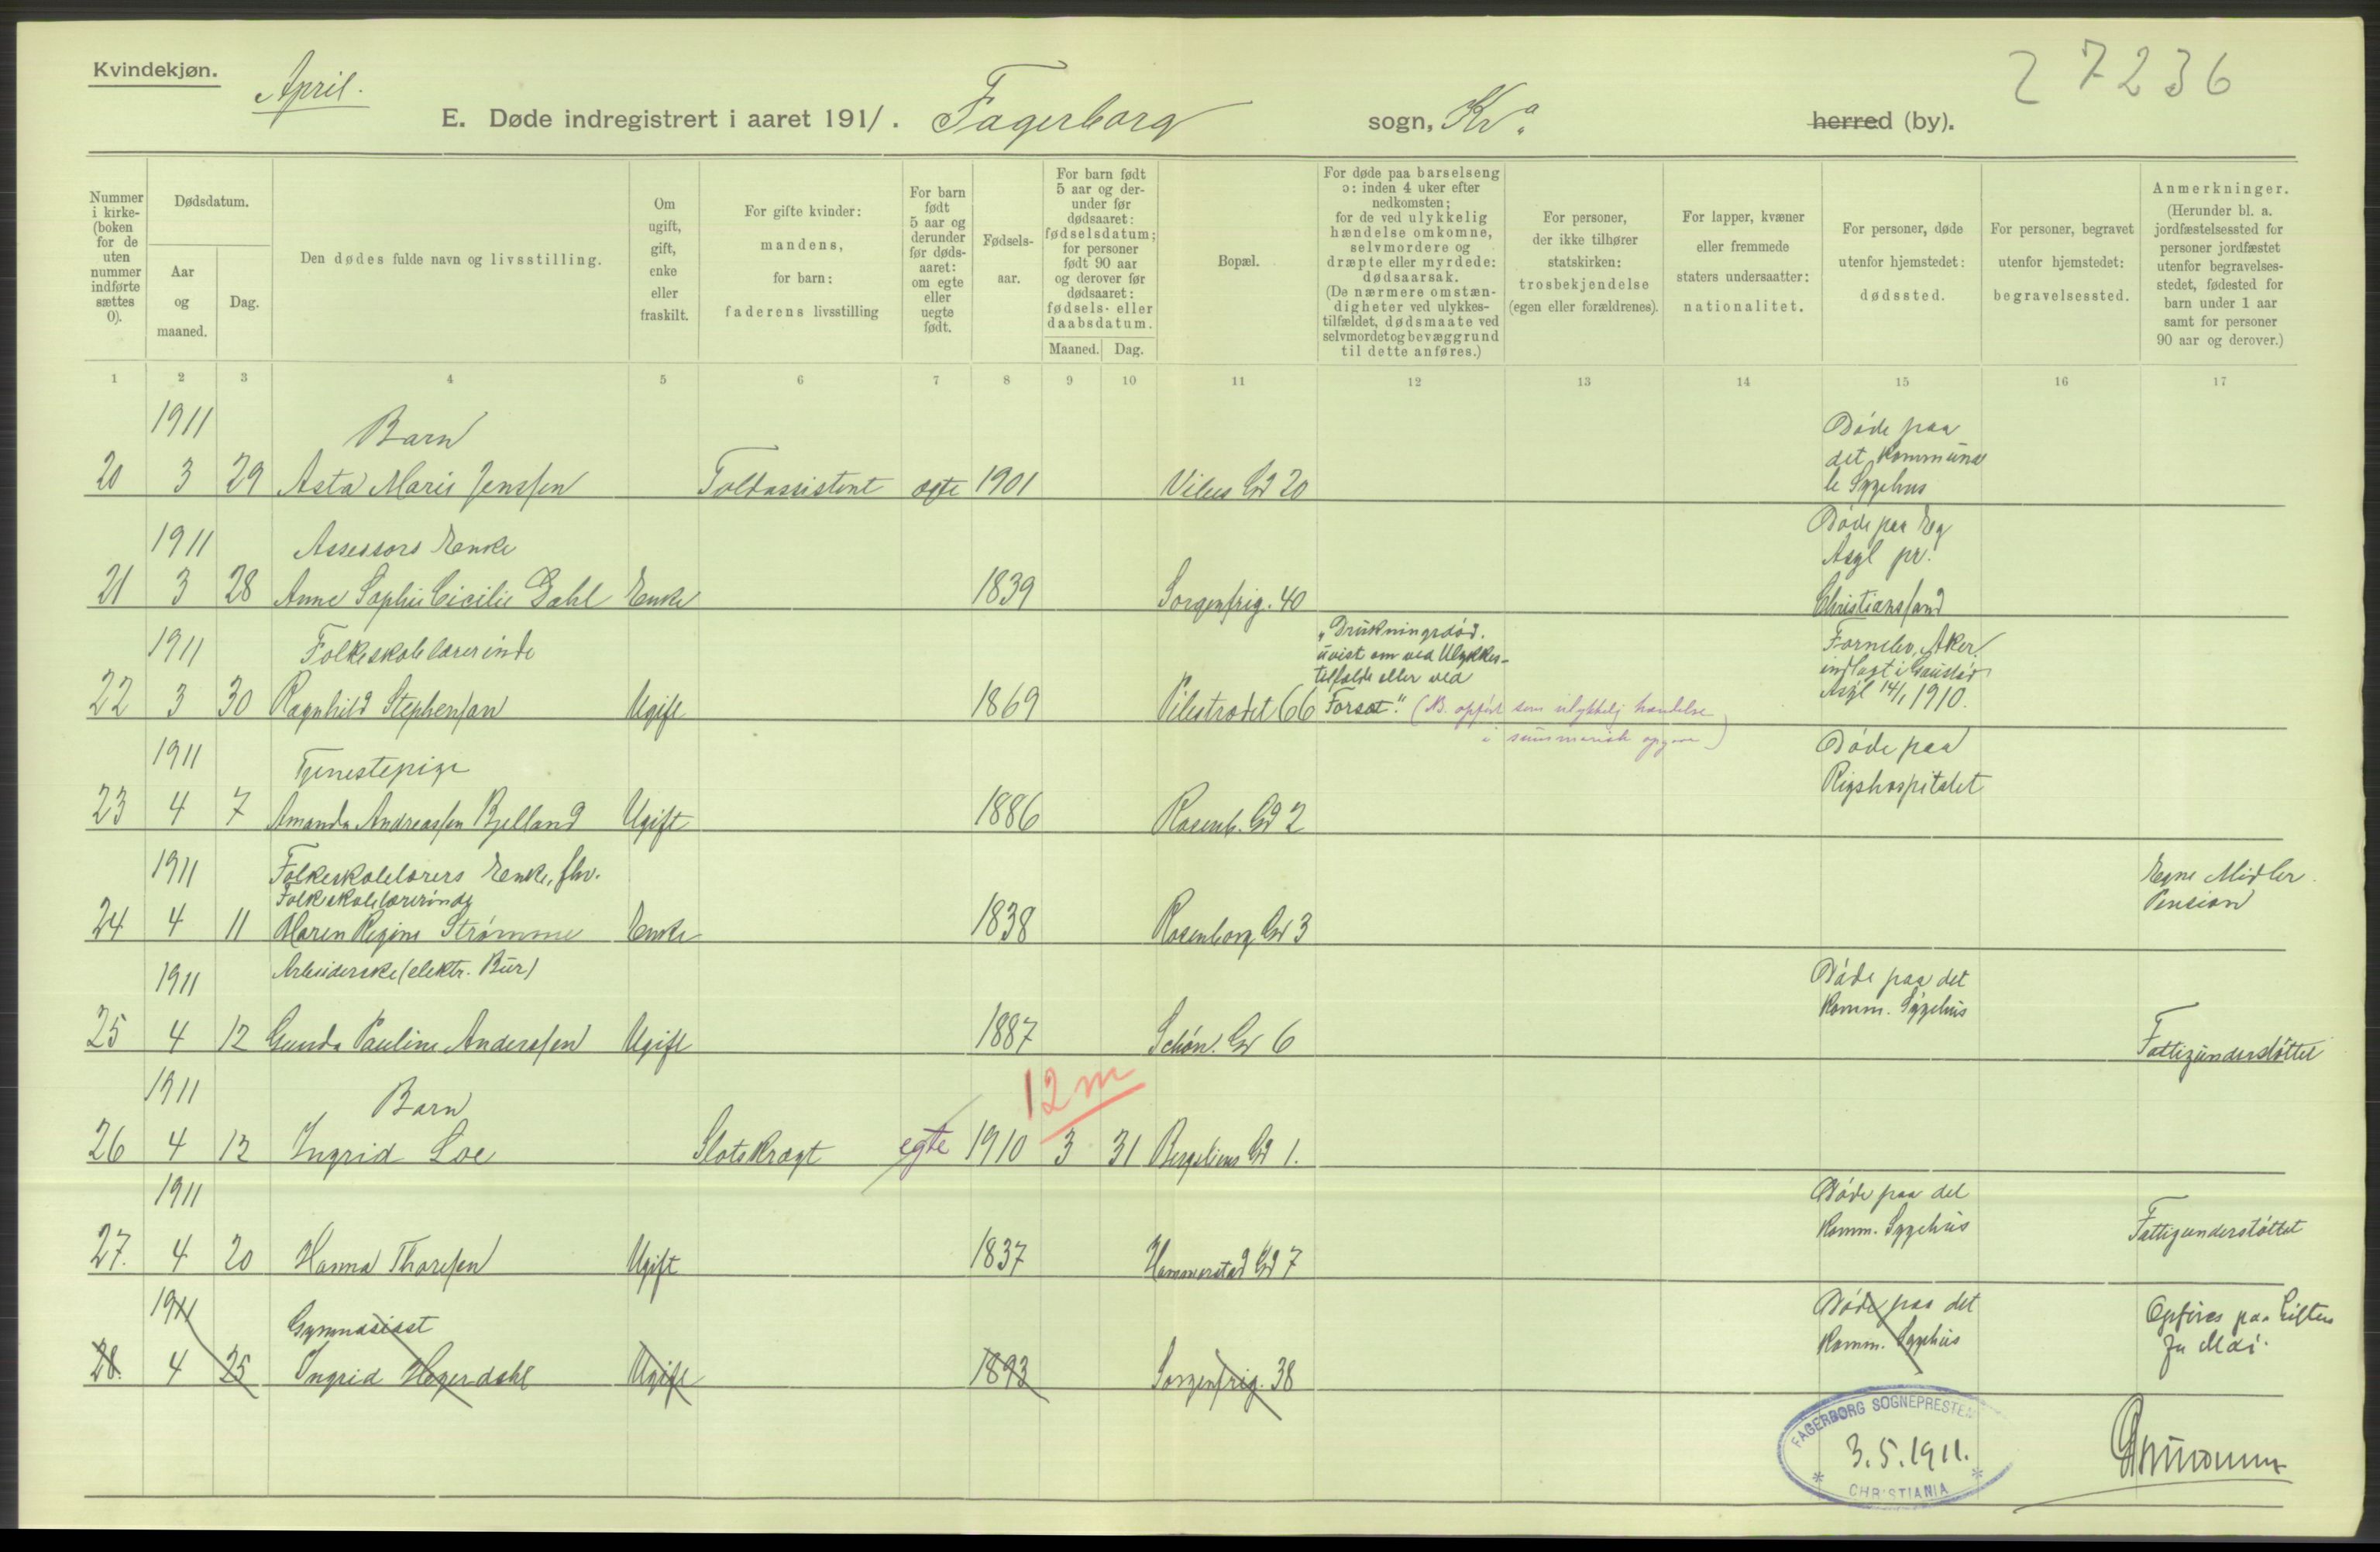 Kvindekjøn.
April.
27236
E. Døde indregistrert i aaret 1911. Fagerborg sogn, Kr.a herred (by).
Nummer i kirkeboken for de uten nummer indførte sættes 0).
Dødsdatum.
Aar og maaned.
Dag.
Den dødes fulde navn og livsstilling.
Om ugift, gift, enke eller fraskilt.
For gifte kvinder: mandens, for barn: faderens livsstilling
For barn født 5 aar og derunder før dødsaaret: om egte eller uegte født.
Fødselsaar.
For barn født 5 aar og derunder før dødsaaret: fødselsdatum; for personer født 90 aar og derover før dødsaaret: fødsels- eller daabsdatum.
Maaned. Dag.
Bopæl.
For døde paa barselseng ɔ: inden 4 uker efter nedkomsten; for de ved ulykkelig hændelse omkomne, selvmordere og dræpte eller myrdede: dødsaarsak. (De nærmere omstændigheter ved ulykkestilfældet, dødsmaate ved selvmordet og bevæggrund til dette anføres.)
For personer, der ikke tilhører statskirken: trosbekjendelse (egen eller forældrenes).
For lapper, kvæner eller fremmede staters undersaatter: nationalitet.
For personer, døde utenfor hjemstedet: dødssted.
For personer, begravet utenfor hjemstedet: begravelsessted.
Anmerkninger. (Herunder bl. a. jordfæstelsessted for personer jordfæstet utenfor begravelsesstedet, fødested for barn under 1 aar samt for personer 90 aar og derover.)
1 2 3 4 5 6 7 8 9 10 11 12 13 14 15 16 17
1911 Barn Døde paa det Kommunale Sygehus
20 3 29 Asta Marie Jenssen Toldassistent egte 1901 Vibes Gd 20
1911 Assessors Enke Døde paa Eg Asyl pr. Christianssand
21 3 28 Anne Sophie Cicilie Dahl Enke 1839 Sorgenfrig. 40
1911 Folkeskolelærerinde "Drukningsdød. uvist om ved Ulykkestilfælde eller ved Fornebo, Aker, indlagt i Gaustad Asyl 14/1 1910.
22 3 30 Ragnhild Stephensan Ugift 1869 Pilestrædet 66 Forsæt." (NB. opført som ulykkelig hændelse i summarisk opgave)
1911 Tjenestepige Døde paa Rigshospitalet
23 4 7 Amanda Andreassen Bjelland Ugift 1886 Rosenb. Gd 2
1911 Folkeskolelærers Enke, fhv. Folkeskolelærerinde Egne Midler. Pension
24 4 11 Maren Regine Strømme Enke 1838 Rosenborg Gd 3
1911 Arbeiderske (elektr. Bür) Døde paa det Komm. Sygehus
25 4 12 Gunda Pauline Anderssen Ugift 1887 Schøn. Gd 6 Fattigunderstøttet
1911 Barn 12 m
26 4 12 Ingrid Loe Slotskragt egte 1910 3 31 Bergeliens Gd 1.
1911 Døde paa det Komm. Sygehus Fattigunderstøttet
27. 4 20 Hanna Thoresen Ugift 1837 Hammerstad Gd 7
1911 Gymnasiast Døde paa det Komm. Sygehus Opføres paa Listen for Mai.
28. 4 25 Ingrid Hagerdahl Ugift 1893 Sorgenfrig. 38
FAGERBORG SOGNEPRESTEM
3.5.1911.
CHRISTIANIA